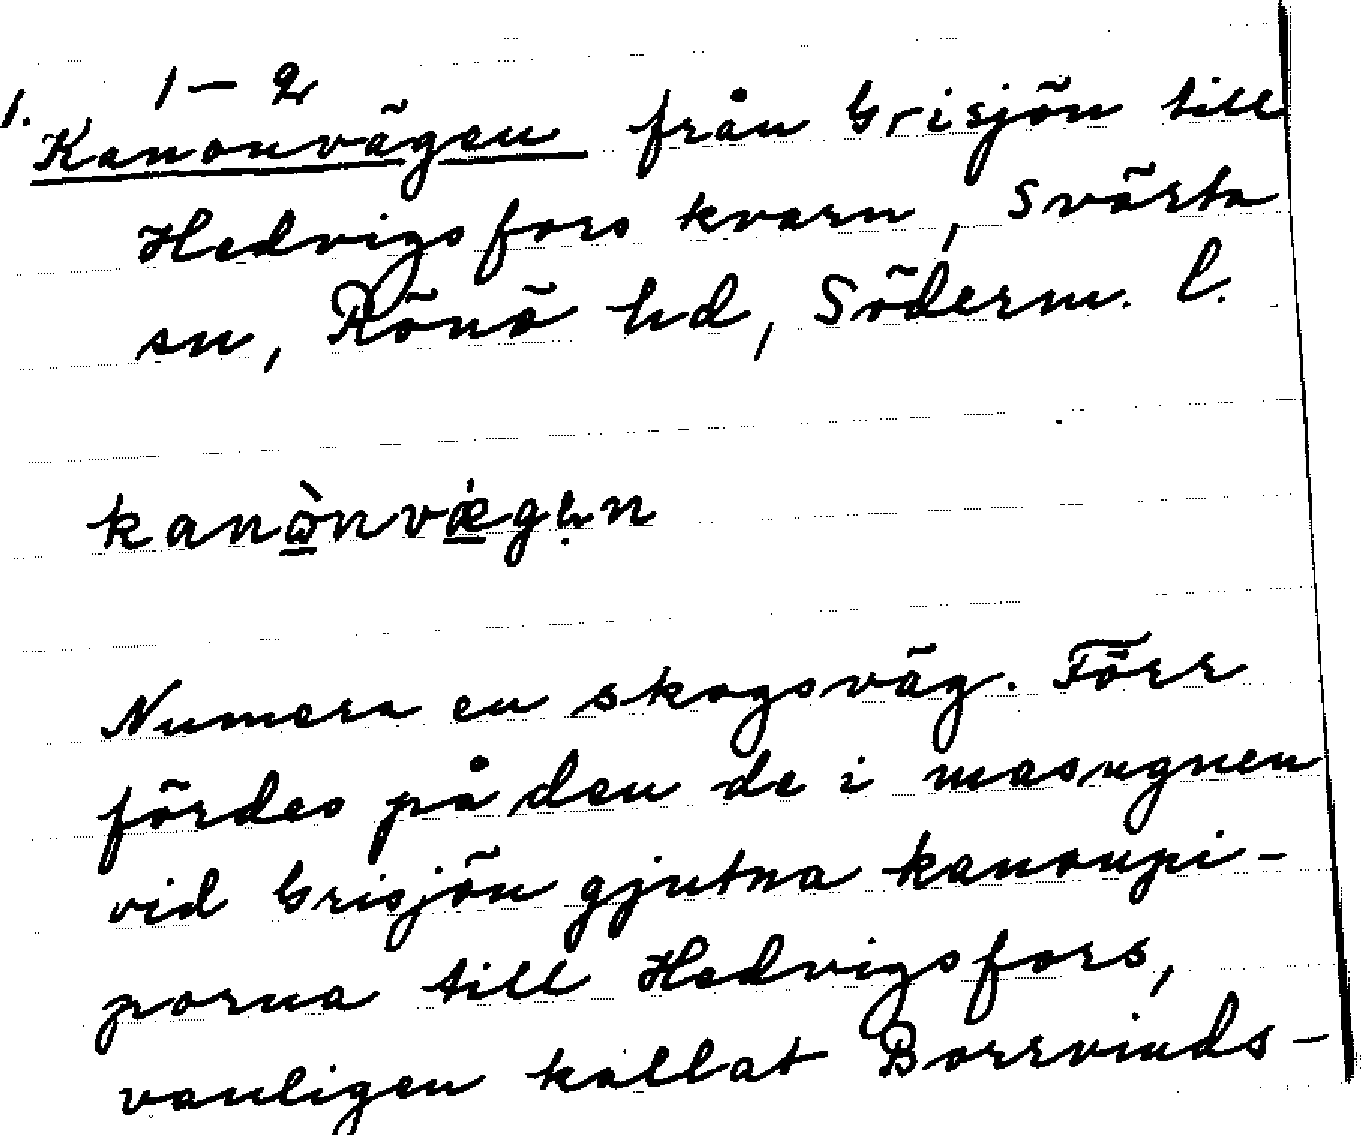 1 – 2
1. Kanonvägen från Grisjön till
Hedvigsfors kvarn, Svärta
sn, Rönö hd, Söderm. l.
kanònvægən
Numera en skogsväg. Förr
fördes på den de i masugnen
vid Grisjön gjutna kanonpi-
porna till Hedvigsfors,
vanligen kallat Borrvinds-